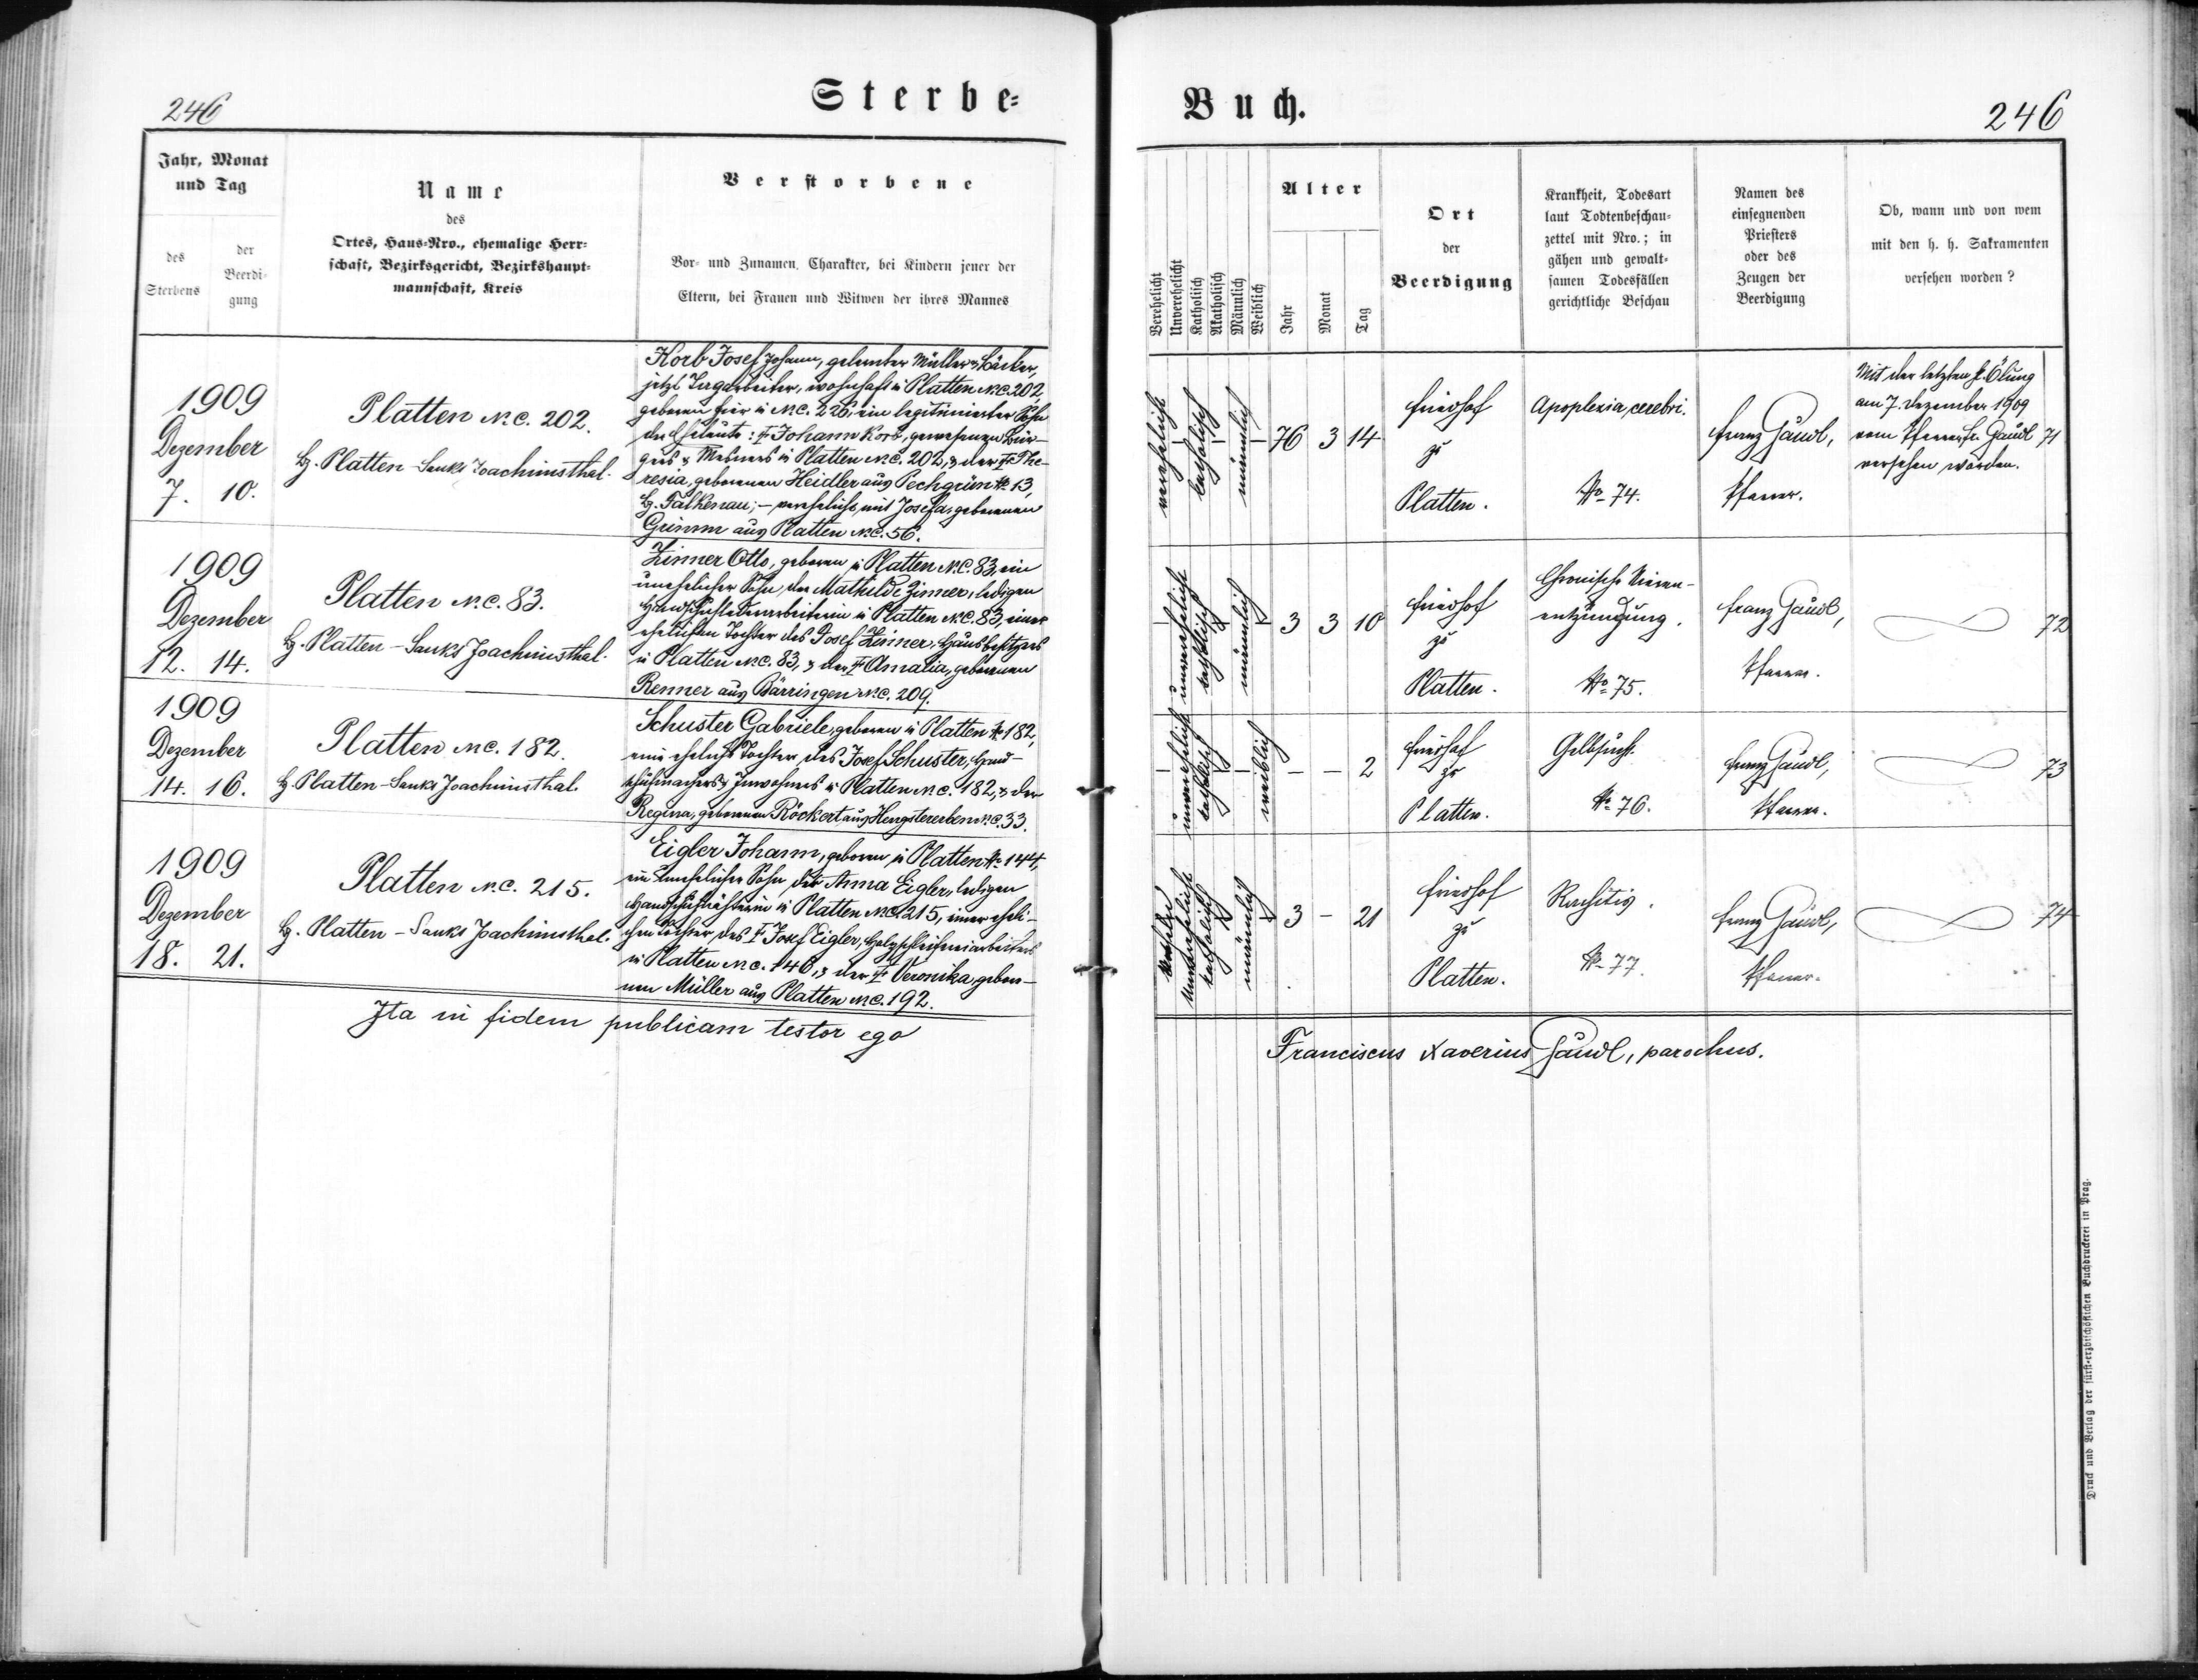 246
Sterbe=
Jahr, Monat
und Tag
des
Sterbens
der
Beerdi-
gung
Name
des
Ortes, Haus-Nro., ehemalige Herr-
schaft, Bezirksgericht, Bezirkshaupt-
mannschaft, Kreis
Verstorbene
Vor- und Zunamen, Charakter, bei Kindern jener der
Eltern, bei Frauen und Witwen der ihres Mannes
1909
Dezember
7. 10.
Platten N.C. 202.
Bz. Platten-Sankt Joachimsthal.
Korb Josef Johann, gelernter Müller & Bäcker,
jetzt Tagarbeiter, wohnhaft in Platten N.C. 202
geboren hier in N.C. 226, ein legitimierter Sohn
der Eheleute: † Johann Korb, gewesenen Bür-
gers & Mesners in Platten N.C. 202, & der † The-
resia, geborenen Heidler aus Pechgrün № 13,
Bz. Falkenau; – verehelicht mit Josefa, geborenen
Grimm aus Platten N.C. 56.
1909
Dezember
12. 14.
Platten N.C. 83.
Bz. Platten – Sankt Joachimsthal.
Zinner Otto, geboren in Platten N.C. 83, ein
unehelicher Sohn, der Mathilde Zinner, ledigen
Handschuhlederarbeiterin in Platten N.C. 83, einer
ehelichen Tochter des Josef Zinner, Hausbesitzers
in Platten N.C. 83, & der † Amalia, geborenen
Renner aus Bärringen N.C. 209.
1909
Dezember
14. 16.
Platten N.C. 182.
Bz. Platten-Sankt Joachimsthal.
Schuster Gabriele, geboren in Platten № 182,
eine eheliche Tochter des Josef Schuster, Hand-
schuhmachers & Inwohners in Platten N.C. 182, & der
Regina, geborenen Röckert aus Hengstererben N.C. 33.
1909
Dezember
18. 21.
Platten N.C. 215.
Bz. Platten – Sankt Joachimsthal.
Eigler Johann, geboren in Platten № 144,
ein unehelicher Sohn der Anna Eigler, ledigen
Handschuhnäherin in Platten N.C. 215, einer eheli-
chen Tochter des † Josef Eigler, Holzschleifereiarbeiters
in Platten N.C. 146, & der † Veronika, gebore-
nen Müller aus Platten N.C. 192.
Ita in fidem publicam testor ego
Buch.
246
Verehelicht
Unverehelicht
Katholisch
Akatholisch
Männlich
Weiblich
Alter
Jahr
Monat
Tag
Ort
der
Beerdigung
Krankheit, Todesart
laut Todtenbeschau-
zettel mit Nro.; in
gähen und gewalt-
samen Todesfällen
gerichtliche Beschau
Namen des
einsegnenden
Priesters
oder des
Zeugen der
Beerdigung
Ob, wann und von wem
mit den h. h. Sakramenten
versehen worden?
verehelicht
–
katholisch
–
männlich
–
76 3 14
Friedhof
zu
Platten.
Apoplexia cerebri.
№ 74.
Franz Gäudl,
Pfarrer.
Mit der letzten h. Ölung
am 7. Dezember 1909
vom Pfarrer Fr. Gäudl
versehen worden.
71
–
unverehelicht
katholisch
–
männlich
–
3 3 10
Friedhof
zu
Platten.
Chronische Nieren-
entzündung.
№ 75.
Franz Gäudl,
Pfarrer.
72
–
unverehelicht
katholisch
–
–
weiblich
– – 2
Friedhof
zu
Platten.
Gelbsucht.
№ 76.
Franz Gäudl,
Pfarrer.
73
unverehelicht
katholisch
männlich
3 – 21
Friedhof
zu
Platten.
Rachitis.
№ 77.
Franz Gäudl,
Pfarrer.
74
Franciscus Xaverius Gäudl, parochus.
Druck und Verlag der fürst-erzbischöflichen Buchdruckerei in Prag.